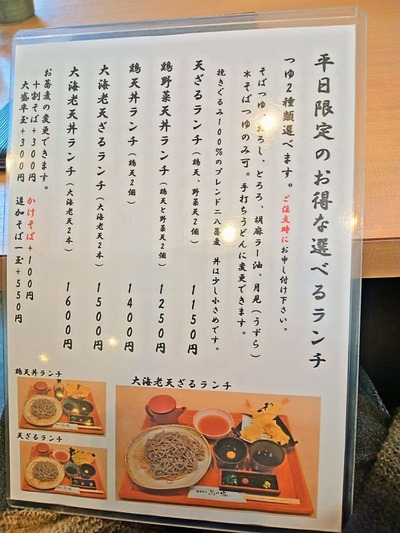 平日限定のお得な選べるランチ
つゆ2種類選べます。ご注文時にお申し付け下さい。
そばつゆ、おろし、とろろ、胡麻ラー油、月見(うずら)
※そばつゆのみ可。手打ちうどんに変更できます。
挽きぐるみ100%のブレンド二八蕎麦 丼は少し小さめです。
天ざるランチ(鶏天、野菜天2個) 1150円
鶏野菜天丼ランチ(鶏天と野菜天2個) 1250円
鶏天丼ランチ(鶏天2個) 1400円
大海老天ざるランチ(大海老天2本) 1500円
大海老天丼ランチ(大海老天2本) 1600円
お蕎麦の変更できます。
十割そば+300円 かけそば+100円
大盛半玉+300円 追加そば一玉+550円
鶏天丼ランチ
天ざるランチ
大海老天ざるランチ